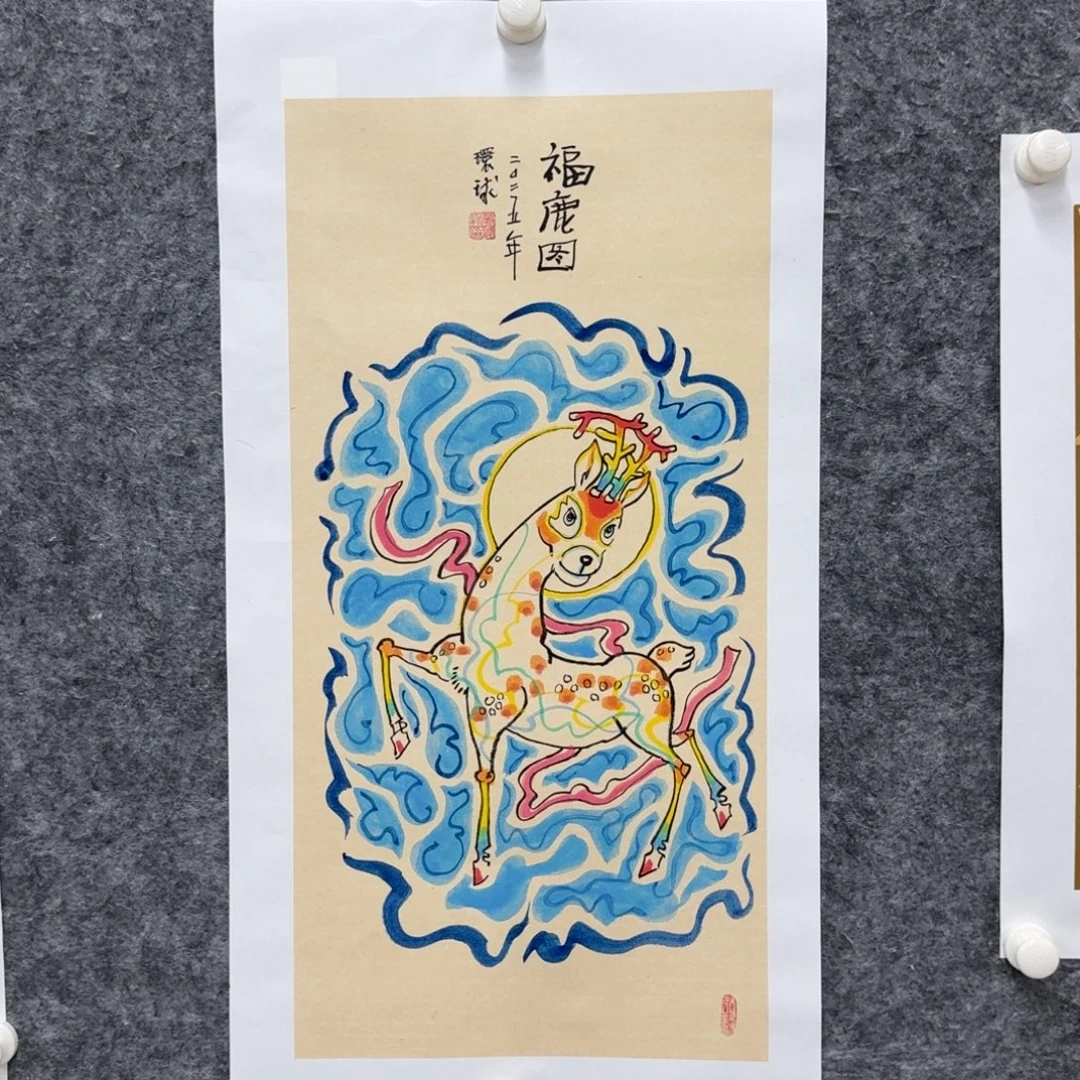 福鹿图
二〇二五年
環球